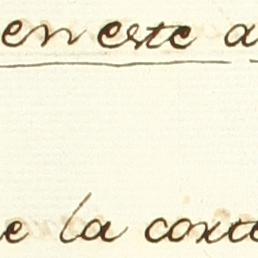 en este a
e la corte